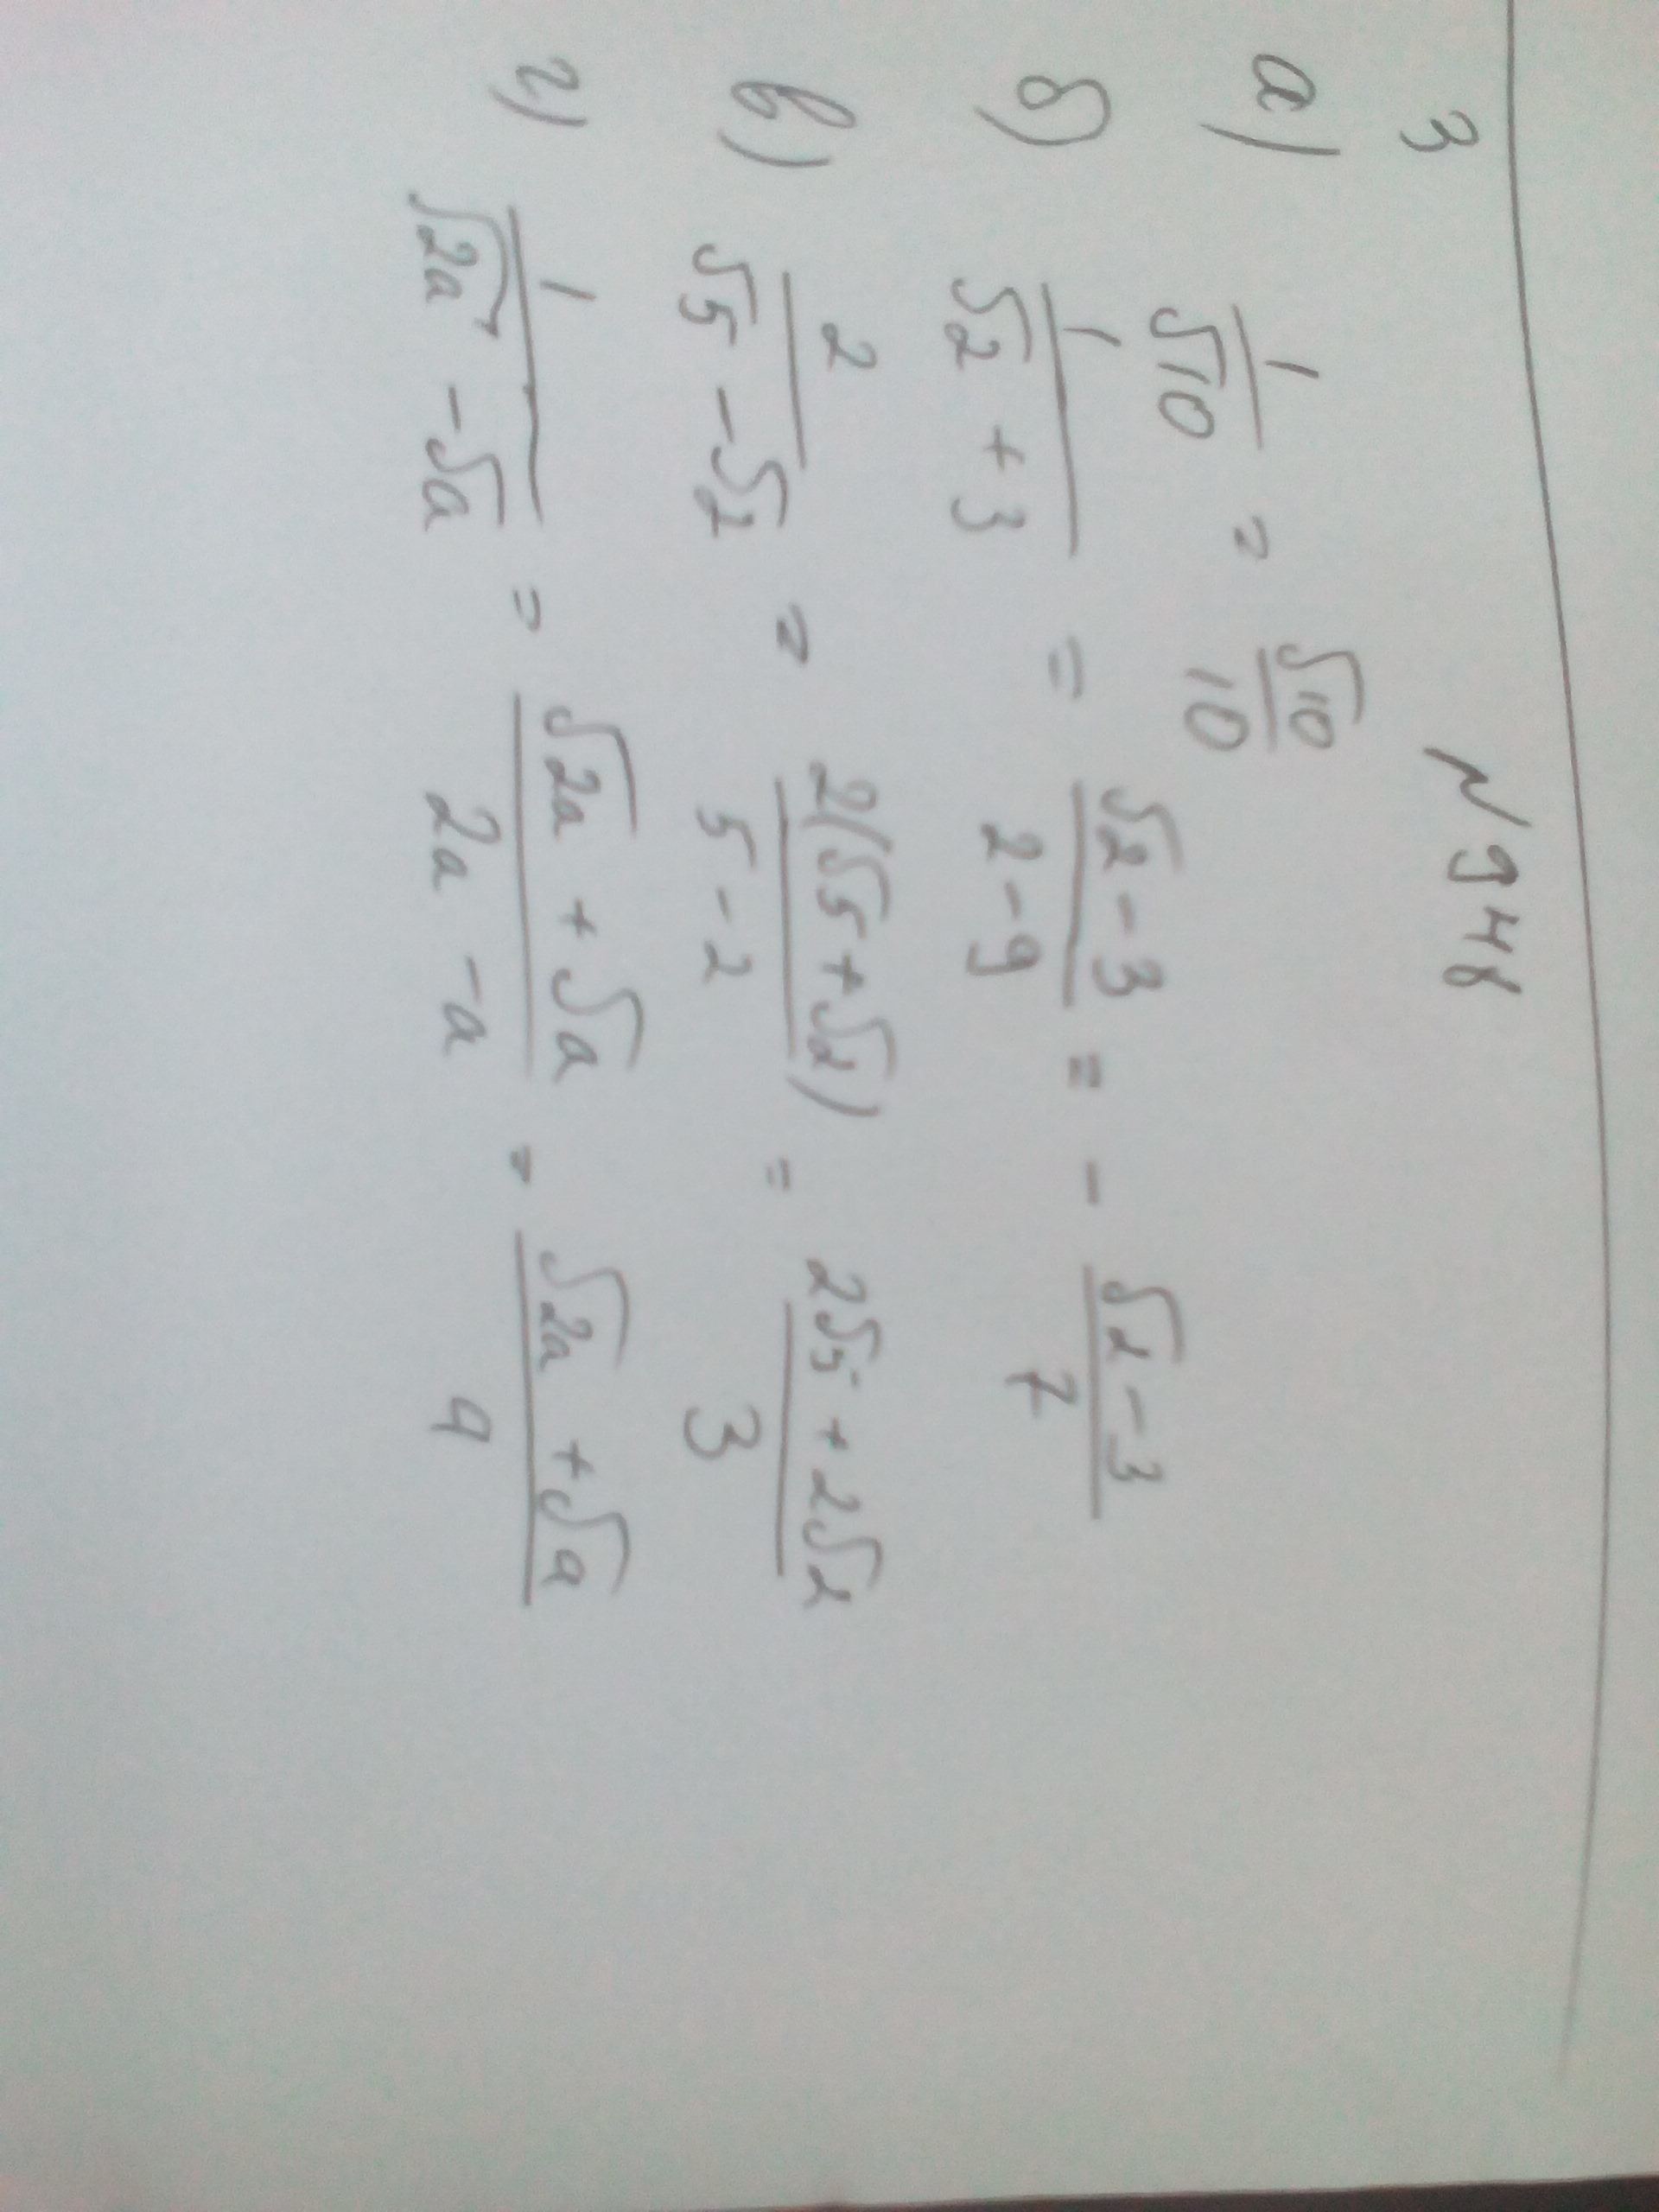 3 №948
а) 1/√10 = √10/10
б) 1/(√2 + 3) = (√2 - 3)/(2 - 9) = - (√2 - 3)/7
в) 2/(√5 - √2) = 2(√5 + √2)/(5 - 2) = (2√5 + 2√2)/3
г) 1/(√2a - √a) = (√2a + √a)/(2a - a) = (√2a + √a)/a